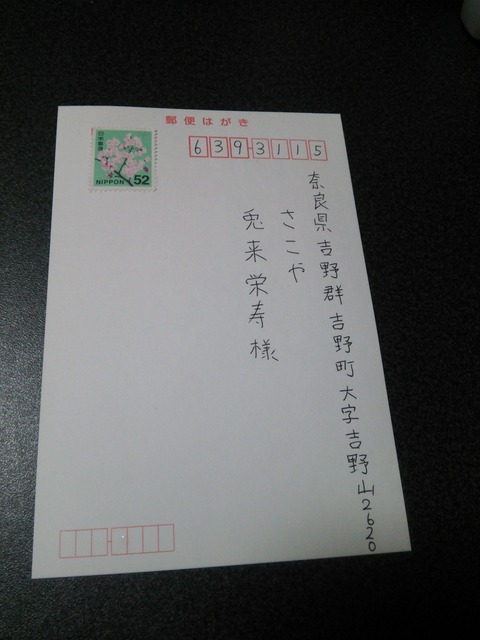 郵便はがき
日本郵便
NIPPON 52
639-3115
奈良県吉野群吉野町大字吉野山2620
さこや
兎来栄寿様